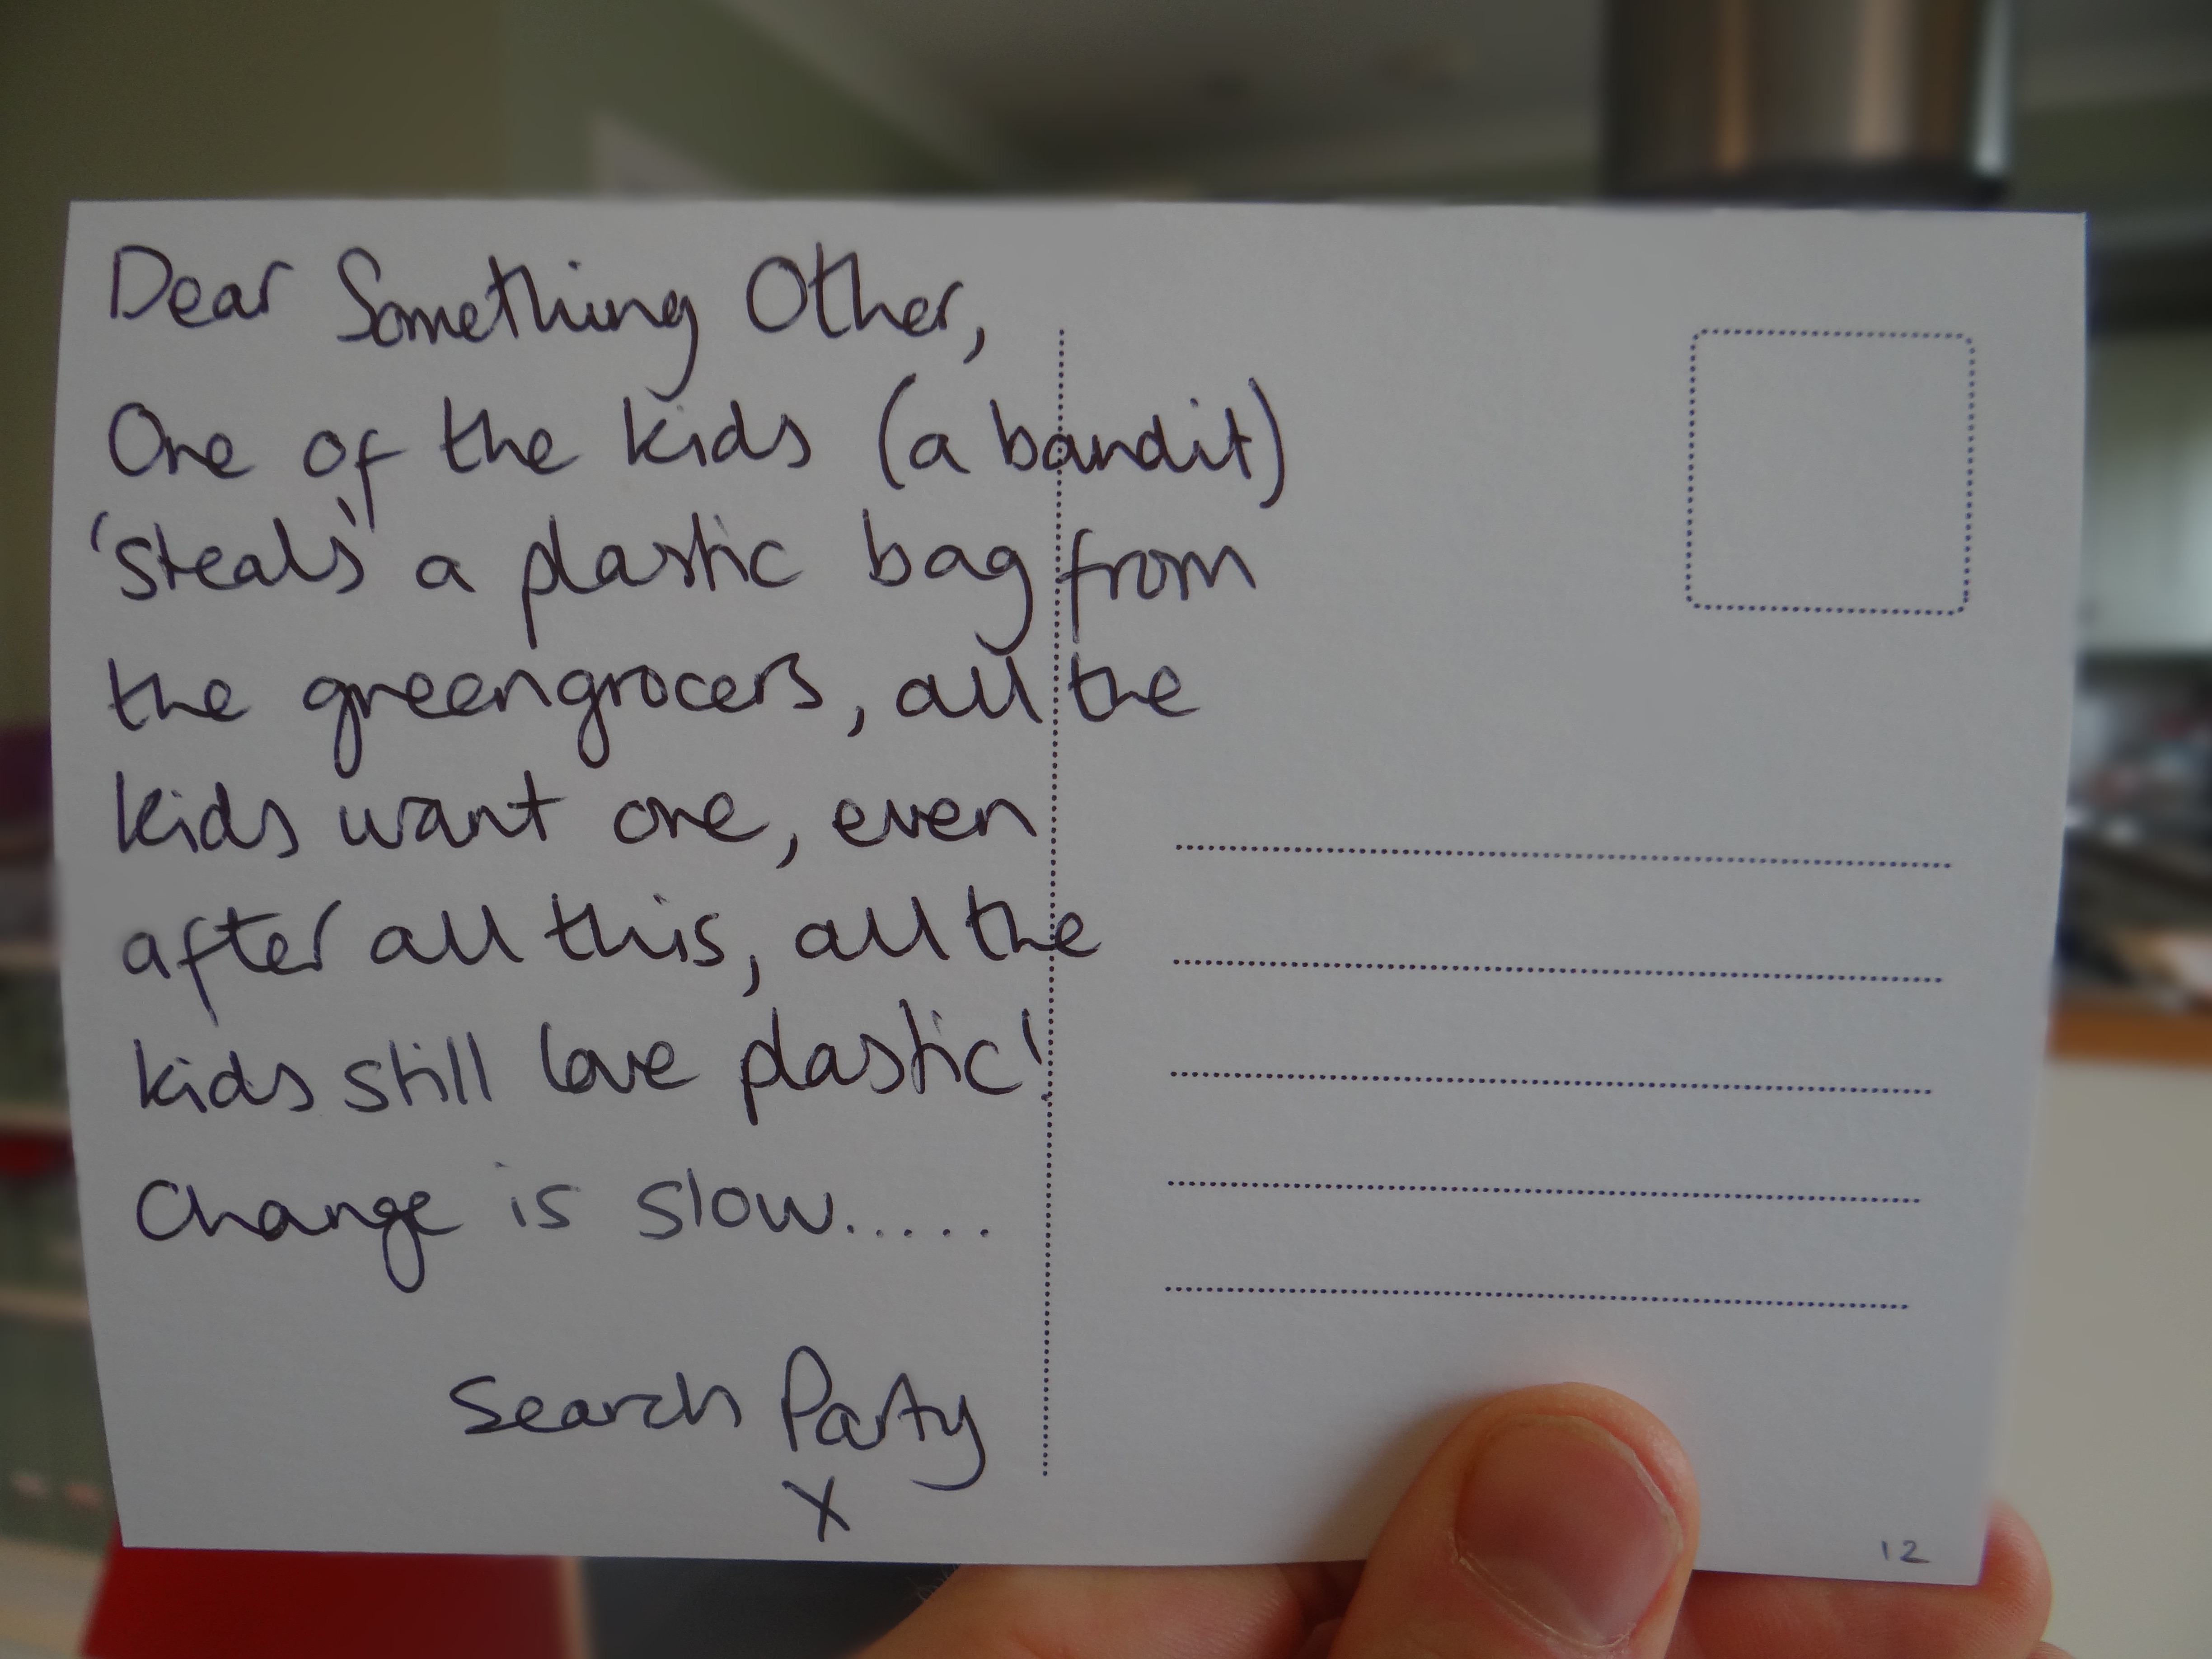 Dear Something Other,
One of the kids (a bandit)
'steals' a plastic bag from
the greengrocers, all the
kids want one, even
after all this, all the
kids still love plastic!
Change is slow.....
Search Party
X
12